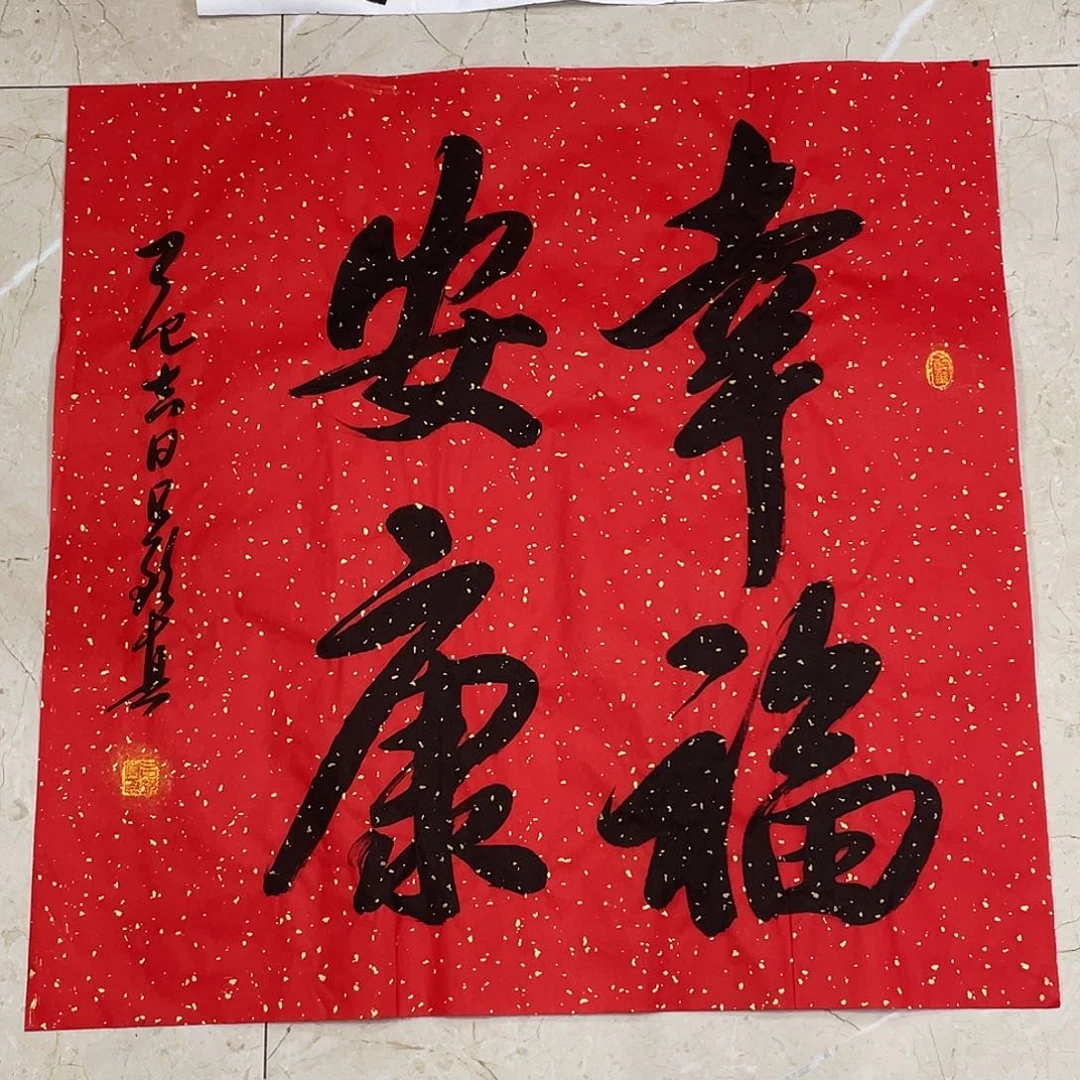 幸福
安康
乙巳吉日